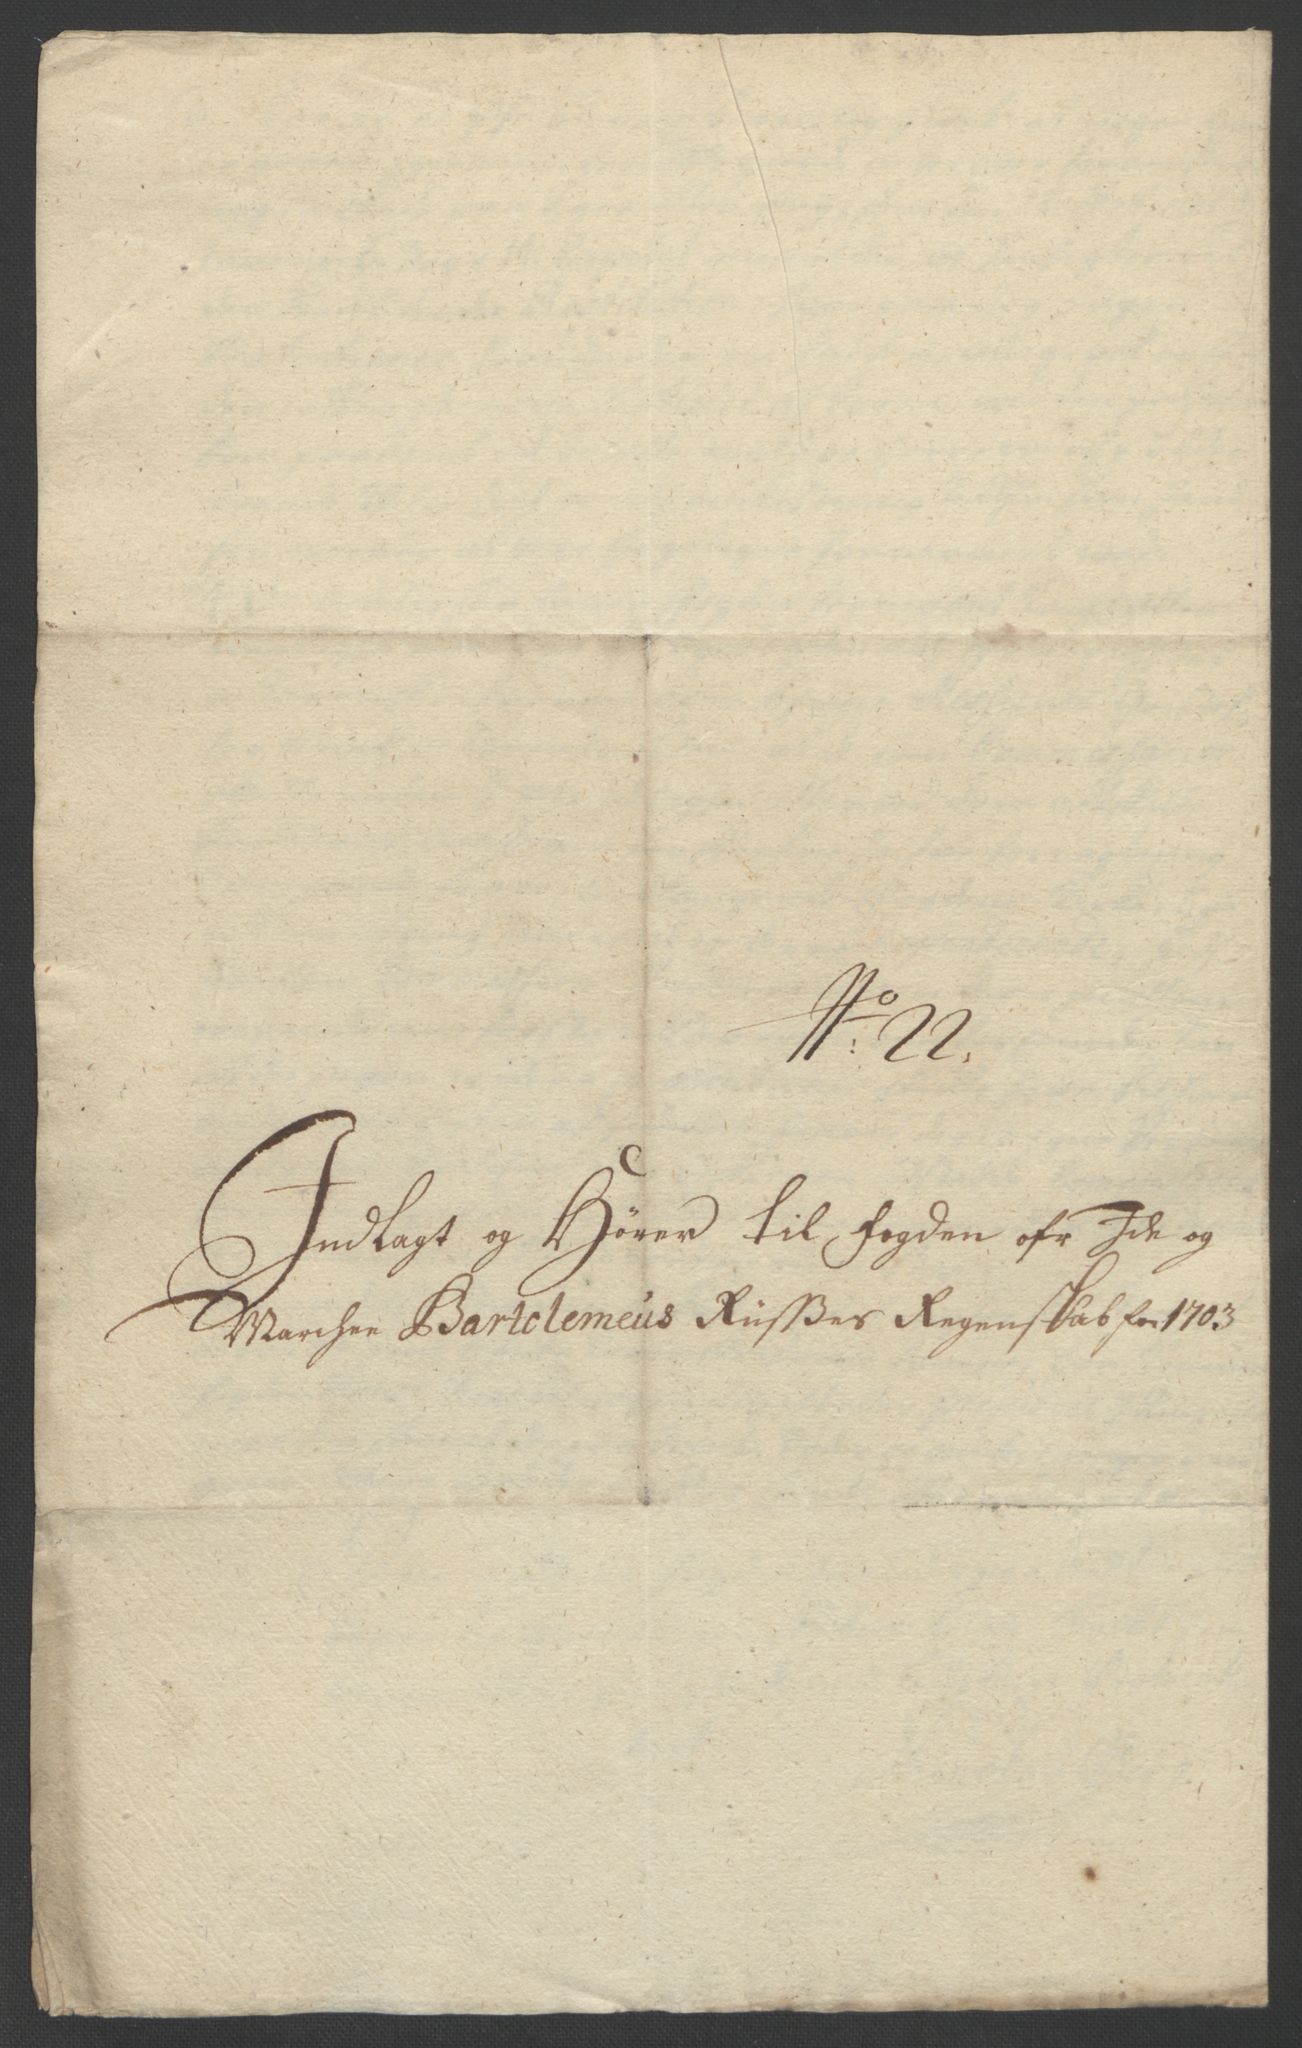 No: 22.
Indlagt og Hörer til fogden ofr Ide og
Marchee Bartolemeüs Rüsses Regenskab for 1703